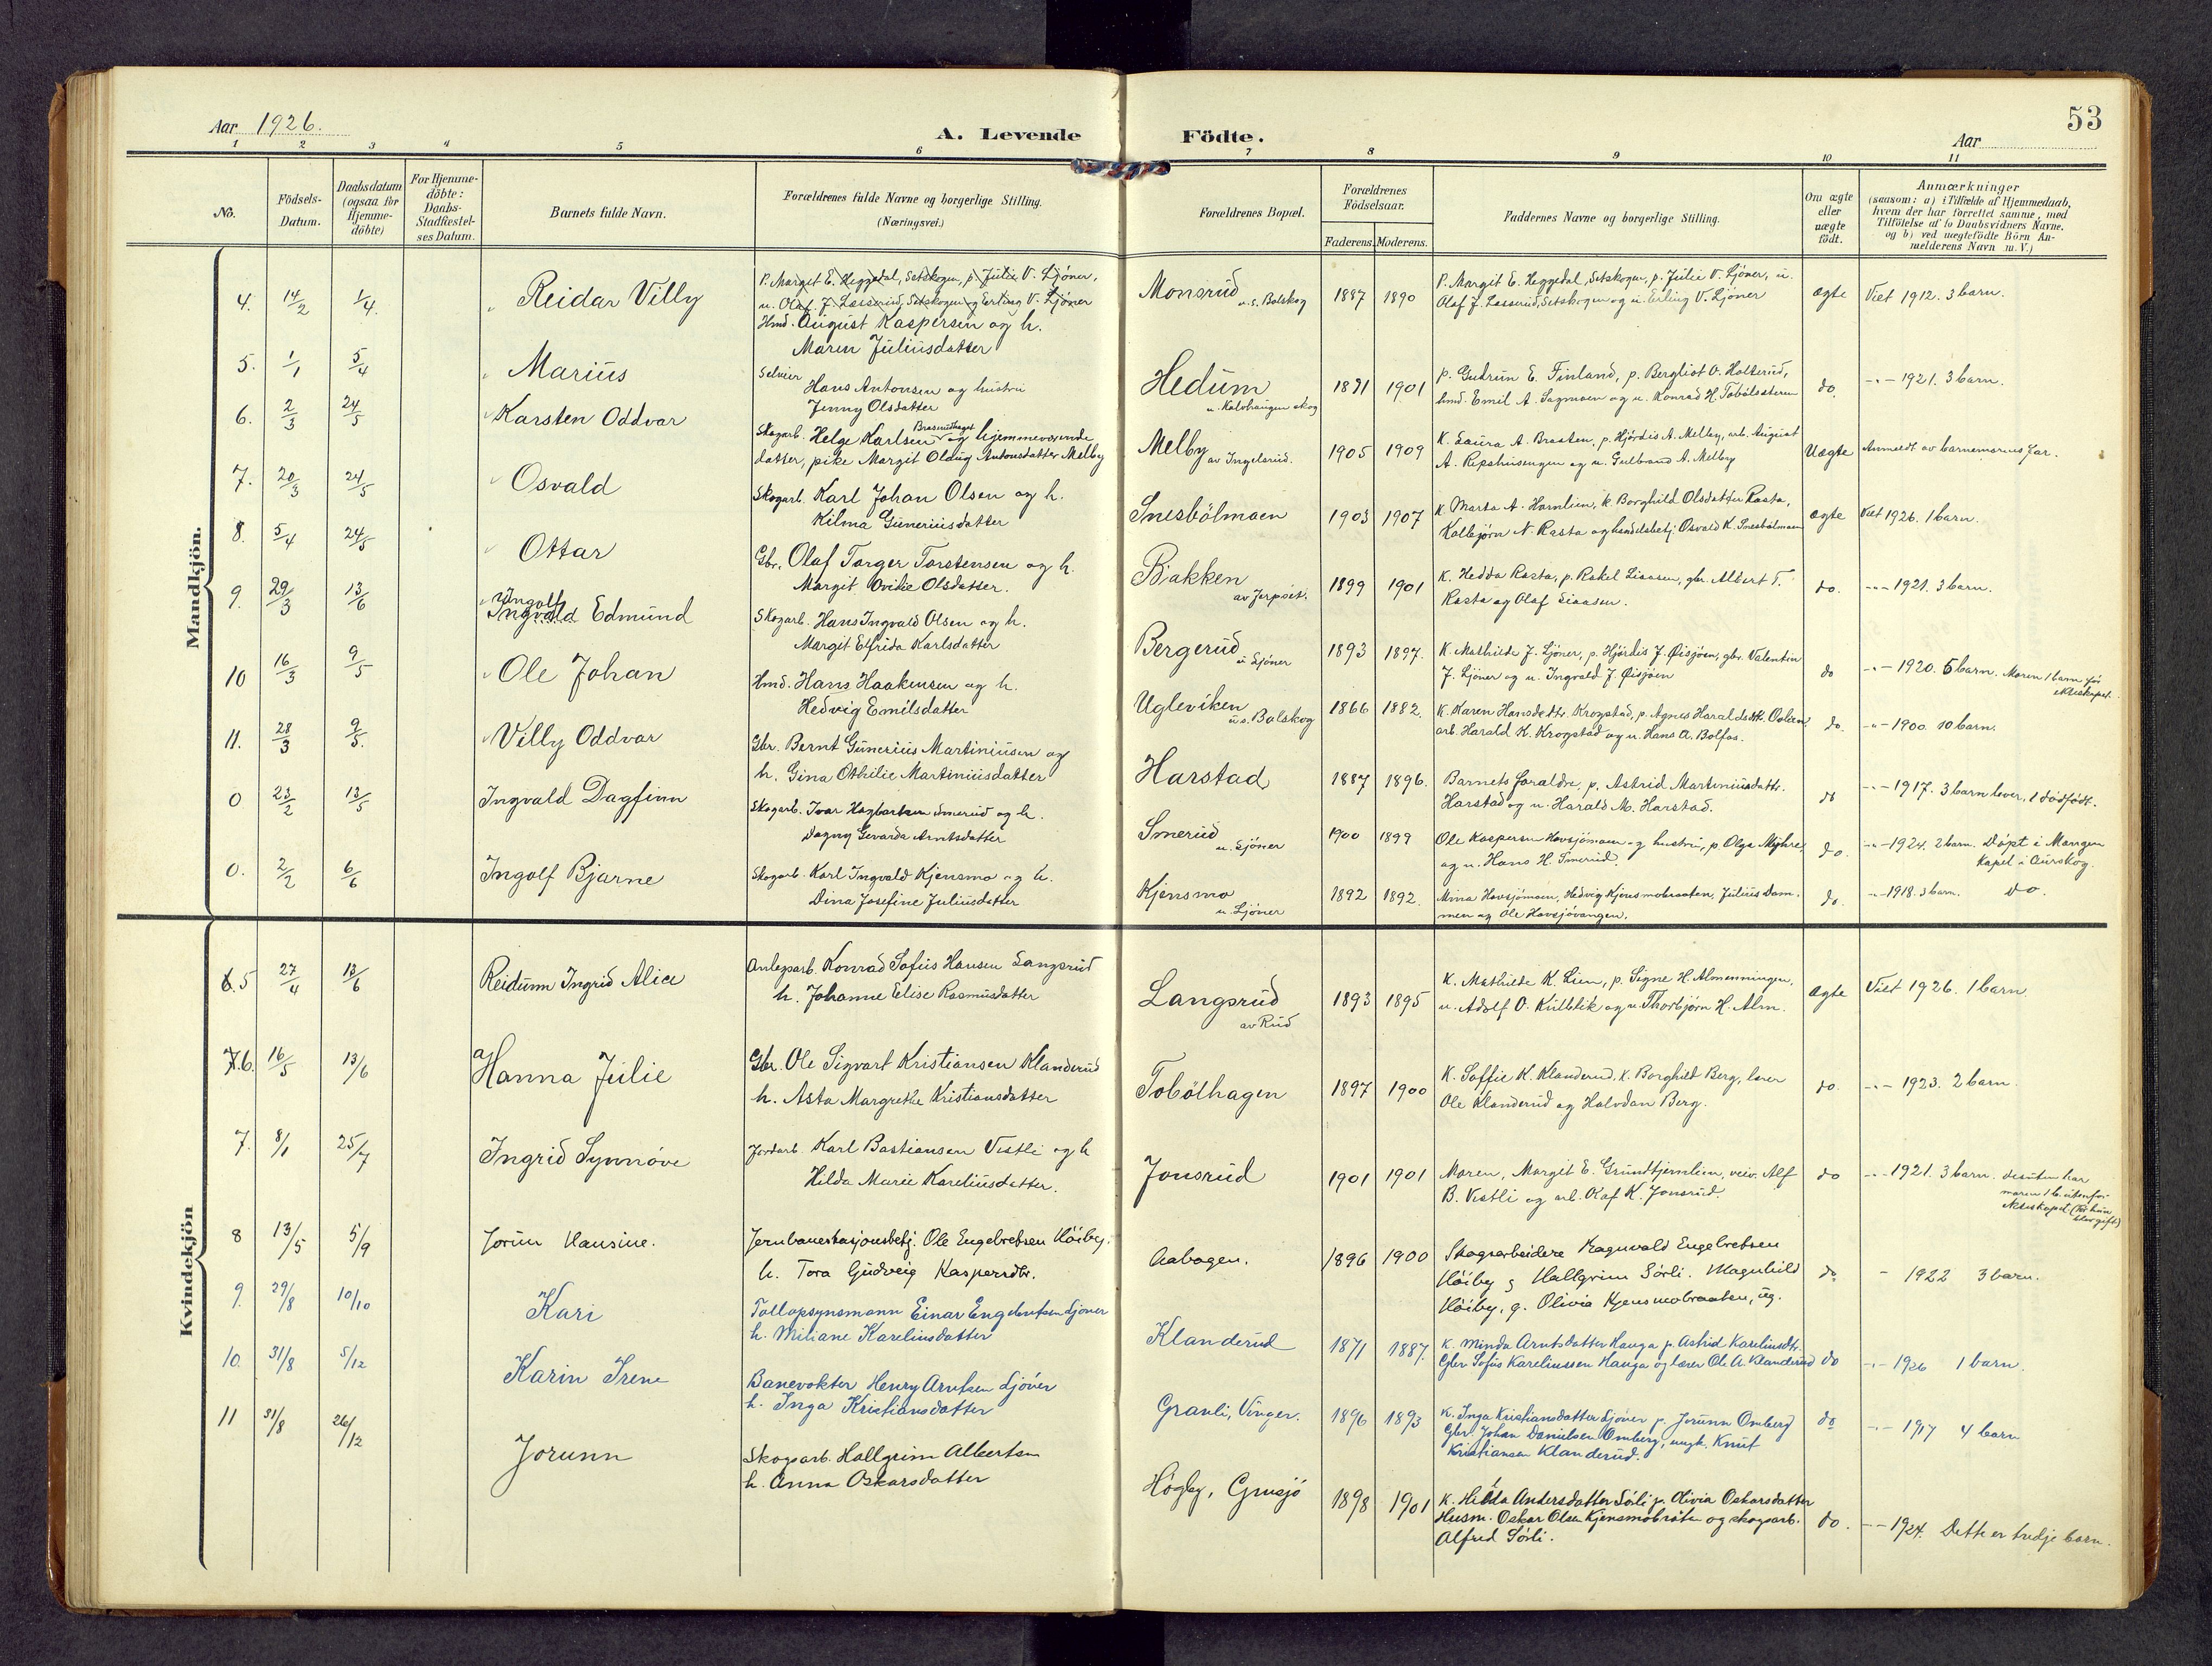 53
Aar 1926.
A. Levende Födte.
Aar
1 2 3 4 5 6 7 8 9 10 11
No.
Födsels-Datum.
Daabsdatum (ogsaa for Hjemme-döbte)
For Hjemme-döbte: Daabs-Stadfæstel-ses Datum.
Barnets fulde Navn.
Forældrenes fulde Navne og borgerlige Stilling.
(Næringsvei.)
Forældrenes Bopæl.
Forældrenes Födselsaar.
Faderens. Moderens.
Faddernes Navne og borgerlige Stilling.
Om ægte eller uægte födt.
Anmærkninger
(saasom: a) i Tilfælde af Hjemmedaab,
hvem der har forrettet samme, med
Tilföielse af to Daabsvidners Navne.
og b) ved uægtefödte Börn An-
melderens Navn m. V.)
Mandkjön.
4. 14/2 1/4. Reidar Villy
P. Margit E. Heggedal, Setskogen, p. Julie V. Ljöner,
u. Olaf J. Lasserud, Setskogen og Erling V. Ljöner
Hmd. August Kaspersen og h.
Maren Juliusdatter
Monsrud u. s. Bolskog 1887 1890
P. Margit E. Heggedal, Setskogen, p. Julie V. Ljöner, u.
Olaf J. Lasserud, Setskogen og u. Erling V. Ljöner
ægte Viet 1912. 3 barn.
5. 1/1 5/4 Marius
Selveier
Hans Antonsen og hustru
Jenny Olsdatter
Hedum 1891 1901
p. Gudrun E. Finland, p. Bergliot O. Holterud,
hmd. Emil A. Sagmoen og u. Konrad H. Tobölsæteren
do. -"- 1921. 3 barn.
6. 2/3 24/5 Karsten Oddvar
Skogarb. Helge Karlsen og hjemmeværende
datter, pike Margit Oldug Antonsdatter Melby
Melby av Ingelsrud. 1905 1909
K. Laura A. Braaten, p. Hjördis A. Melby, arb. August
A. Repshusengen og u. Gulbrand A. Melby
Uægte Anmeldt av barnemorens far.
7. 20/3 24/5 Osvald
Skogarb. Karl Johan Olsen og h.
Kilma Guneriusdatter
Snesbölmoen 1903 1907
K. Marta A. Hamlien, k. Borghild Olsdatter Rasta,
Kolbjörn N. Rasta og handelsbetj. Osvald K. Snesbölmoen
ægte Viet 1926. 1 barn.
8. 5/4 24/5 Ottar
Gbr. Olaf Torger Torstensen og h.
Margit Ovidie Olsdatter.
Bakken av Jerpset. 1899 1901
K. Hedda Rasta, p. Rakel Liaasen, gbr. Albert T.
Rasta og Olaf Liaasen.
do. -"- 1921. 3 barn.
9. 29/3 13/6 Ingolf
Ingvald Edmund
Skogarb. Hans Ingvald Olsen og h.
Margit Elfrida Karlsdatter
Bergerud u. Ljöner 1893 1897.
K. Mathilde J. Ljöner, p. Hjördis J. Øisjöen, gbr. Valentin
J. Ljöner og u. Ingvald J. Øisjöen
do -"- 1920. 5 barn. Moren 1 barn för
ekteskapet.
10 16/3 9/5 Ole Johan
Hmd. Hans Haakensen og h.
Hedvig Emilsdatter
Ugleviken u. s. Bolskog 1866 1882.
K. Karen Hansdatter Krogstad, p. Agnes Haraldsdtr. Oolsen
arb. Harald K. Krogstad og u. Hans A. Bolfos.
do. -"- 1900. 10 barn.
11. 28/3 9/5. Villy Oddvar
Gbr. Bernt Gunerius Martiniusen og
h. Gina Othilie Martiniusdatter
Harstad 1887 1896.
Barnets foraldre, p. Astrid Martiniusdattr.
Harstad og u. Harald M. Harstad.
do -"- 1917. 3 barn lever, 1 dödfödt.
0 23/2 13/5 Ingvald Dagfinn
Skogarb. Ivar Hagbartsen Smerud og h.
Dagny Gevarda Arntsdatter
Smerud u. Ljöner 1900 1899
Ole Kaspersen Havsjömoen og hustru, p. Olga Myhre,
og u. Hans H. Smerud.
do. -"- 1924. 2 barn. Döpt i Mangen
kapel i Aurskog.
0. 2/2 6/6 Ingolf Bjarne
Skogarb. Karl Ingvald Kjensmo og h.
Dina Josefine Juliusdatter
Kjensmo u. Ljöner 1892 1892.
Mina Havsjömoen, Hedvig Kjensmobraaten, Julius Dam-
men og Ole Havsjövangen.
do. -"- 1918. 3 barn. do.
Kvindekjön
6.5 27/4 13/6 Reidunn Ingrid Alice
Anlegsarb. Konrad Sofus Hansen Langsrud
h. Johanne Elise Rasmusdatter
Langsrud av Rud 1893 1895
K. Mathilde K. Lien, p. Signe H. Almenningen,
u. Adolf O. Kulblik og u. Thorbjörn H. Alm.
ægte Viet 1926. 1 barn.
7.6. 16/5 13/6 Hanna Julie
Gbr. Ole Sigvart Kristiansen Klanderud
h. Asta Margrethe Kristiansdatter
Tobölhagen 1897 1900
K. Soffie K. Klanderud. k. Borghild Berg, lærer
Ole Klanderud og Halvdan Berg.
do. -"- 1923. 2 barn.
7. 8/1 25/7 Ingrid Synnöve
Jordarb. Karl Bastiansen Vestli og h
Hilda Marie Kareliusdatter.
Jonsrud 1901 1901
Moren, Margit E. Grundtjernlien, veiv. Alf
B. Vestli og arb. Olaf K. Jonsrud.
do -"- 1921. 3 barn. desuten har
moren 1 b. utenfor
ekteskapet
8 13/5 5/9 Jorun Hansine.
Jernbanestasjonsbetj. Ole Engebretsen Höiby.
h. Tora Gudveig Kaspersdtr.
Aabogen. 1896 1900
Skogsarbeidere Ragnvald Engebretsen
Höiby & Hallgrim Sörli. Magnhild
Höiby, g. Olivia Kjensmobraaten, ug.
do - 1922 3 barn.
9. 29/8 10/10 Kari
Tollopsynsmann Einar Engebretsen Ljöner
h. Miliane Kareliusdatter
Klanderud 1871 1887.
K. Minda Arntsdatter Hauga p. Astrid Kareliusdtr.
Gbr Sofus Kareliussen Hauga og lærer Ole A. Klanderud
do -"- 1926 1 barn.
10. 31/8 5/12 Karin Irene
Banevokter Henry Arntsen Ljöner
h. Inga Kristiansdatter
Granli, Vinger. 1896 1893
K. Inga Kristiansdatter Ljöner p. Jorunn Omberg
Gbr. Johan Danielsen Omberg, ungk. Knut
Kristiansen Klanderud.
do -"- 1917 4 barn
11 31/8 26/12 Jorunn
Skogsarb. Hallgrim Albertsen
h. Anna Oskarsdatter
Högby, Grusjö 1898 1901
K. Hilda Andersdatter Sörli p. Olivia Oskarsdatter
Husm. Oskar Olsen Kjensmobråten og skogsarb.
Alfred Sörli.
do. -"- 1924. Dette er tredje barn.